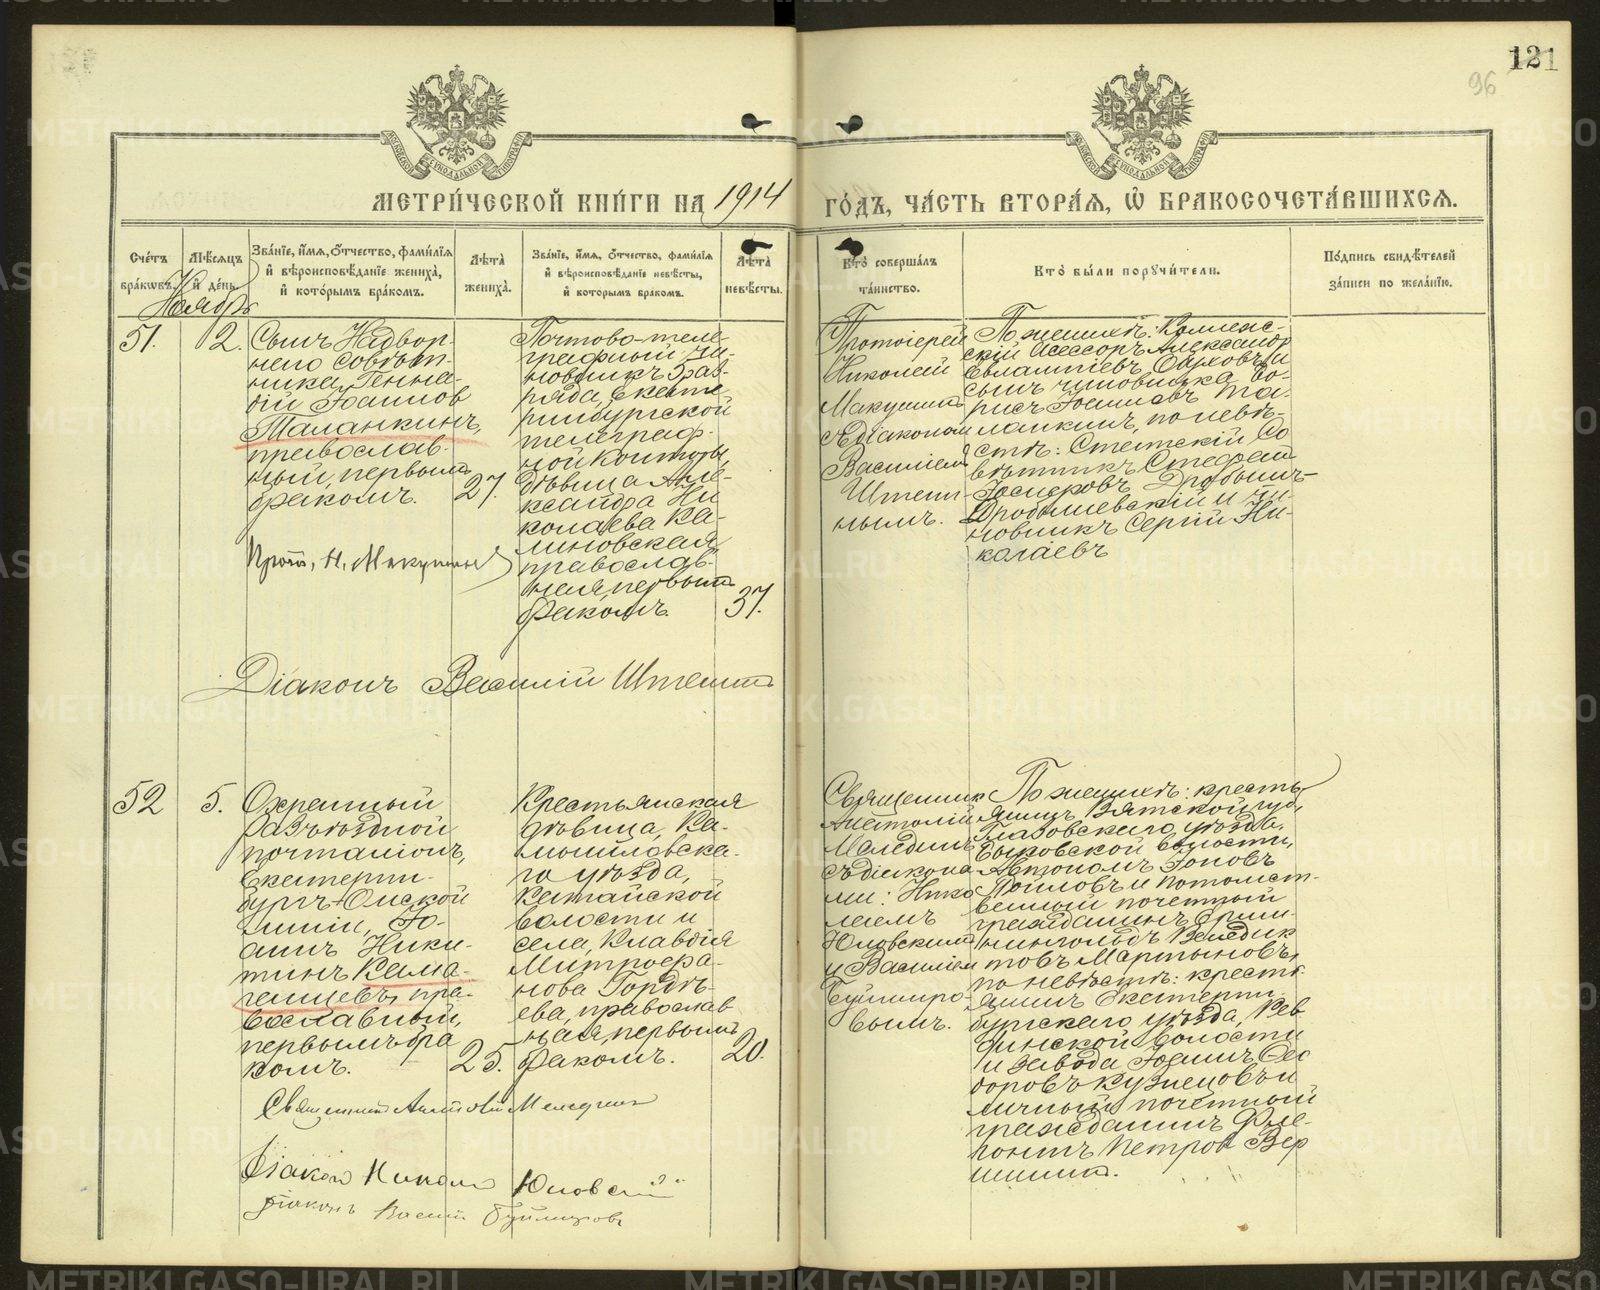 121
96
МЕТРИ́ЧЕСКОЙ КНИ́ГИ НА 1914 ГО́ДЪ, ЧА́СТЬ ВТОРА́Я, Ѽ БРАКОСОЧЕТА́ВШИХСЯ.
Сче́тъ бра́кѡвъ.
Мѣ́сяцъ и҆ де́нь.
Зва́нїе, и҆́мя, ѻ҆́тчество, фами́лїя и҆ вѣроисповѣ́данїе жениха̀, и҆ кото́рымъ бра́комъ.
Лѣ́та жениха̀.
Зва́нїе, и҆́мя, ѻ҆́тчество, фами́лїя и҆ вѣроисповѣ́данїе невѣ́сты, и҆ кото́рымъ бра́комъ.
Лѣ́та невѣ́сты.
Кто̀ соверша́лъ та́инство.
Кто̀ бы́ли поручи́тели.
По́дпись свидѣ́телей за́писи по жела́нїю.
Ноябрь
51.
2.
Сынъ Надвор-
наго Совѣтн-
ника Генна-
дій Іоанновъ
Таланкинъ,
православ-
ный, первымъ
бракомъ.
27.
Прот. Н. Макушинъ
Почтово-теле-
графный чи-
новникъ 5 раз-
ряда, Екате-
ринбургской
телеграф-
ной Конторы,
дѣвица Але-
ксандра Ни
колаева Ка-
линовская
православ-
ная, первымъ
бракомъ.
37.
Протоіерей
Николай
Макушинъ
съ Діакономъ
Василіемъ
Штен-
нымъ.
По женихѣ: Коллеж-
скій Асессоръ Александръ
Евлампіевъ и
сынъ чиновника Бо-
рисъ Іоанновъ Та-
ланкинъ, по невѣ-
стѣ: Статскій Со
вѣтникъ Стефан
Іосифовъ Дробышъ-
Дробышевскій и чи-
новникъ Сергій Ни-
колаевъ
Діаконъ Василій Штеннъ
52
5.
Охранный
разъѣздной
почталіонъ,
Екатерин-
бургъ-Омской
линіи, Іо-
аннъ Ники-
тинъ Кама-
ганцевъ, пра-
вославный,
первымъ бра
комъ.
25.
Крестьянская
дѣвица, Ка-
мышловска-
го уѣзда,
Катайской
волости и
села, Клавдія
Митрофа-
нова Гордѣ-
ева, православ
ная, первымъ
бракомъ.
20.
Священникъ
Анатолій
Малединъ
съ діакона
ми: Нико
лаемъ
Юновскимъ
и Василіемъ
Буймиро-
вымъ.
По женихѣ: кресть
янинъ Вятской губ,
Глазовскаго уѣзда,
волости,
Автономъ Іоновъ
и потомст-
венный почетный
гражданинъ Ерми-
нингольдъ Венедик
товъ Мартыновъ,
по невѣстѣ: кресть
янинъ Екатерин-
бургскаго уѣзда, Рев
динской волости
и завода Іоаннъ Ѳео
доровъ Кузнецовъ и
личный почетный
гражданинъ Фле-
гонтъ Петровъ Вер
шининъ.
Священникъ Анатолій Маледин
Діаконъ Николай Юновскій
Діаконъ Василій Буймировъ
METRIKI.GASO-URAL.RU